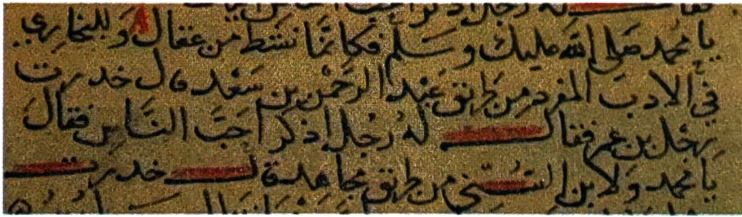 له رجل اذكر احب الناس
يا محمد صلى الله عليك وسلم فكانما نشط من عقال وللبخاري
في الادب المفرد من طريق عبد الرحمن بن سعد قال خدرت
رجل بن عمر فقال له رجل اذكر احب الناس فقال
يا محمد ولابن السني من طريق مجاهد خدرت